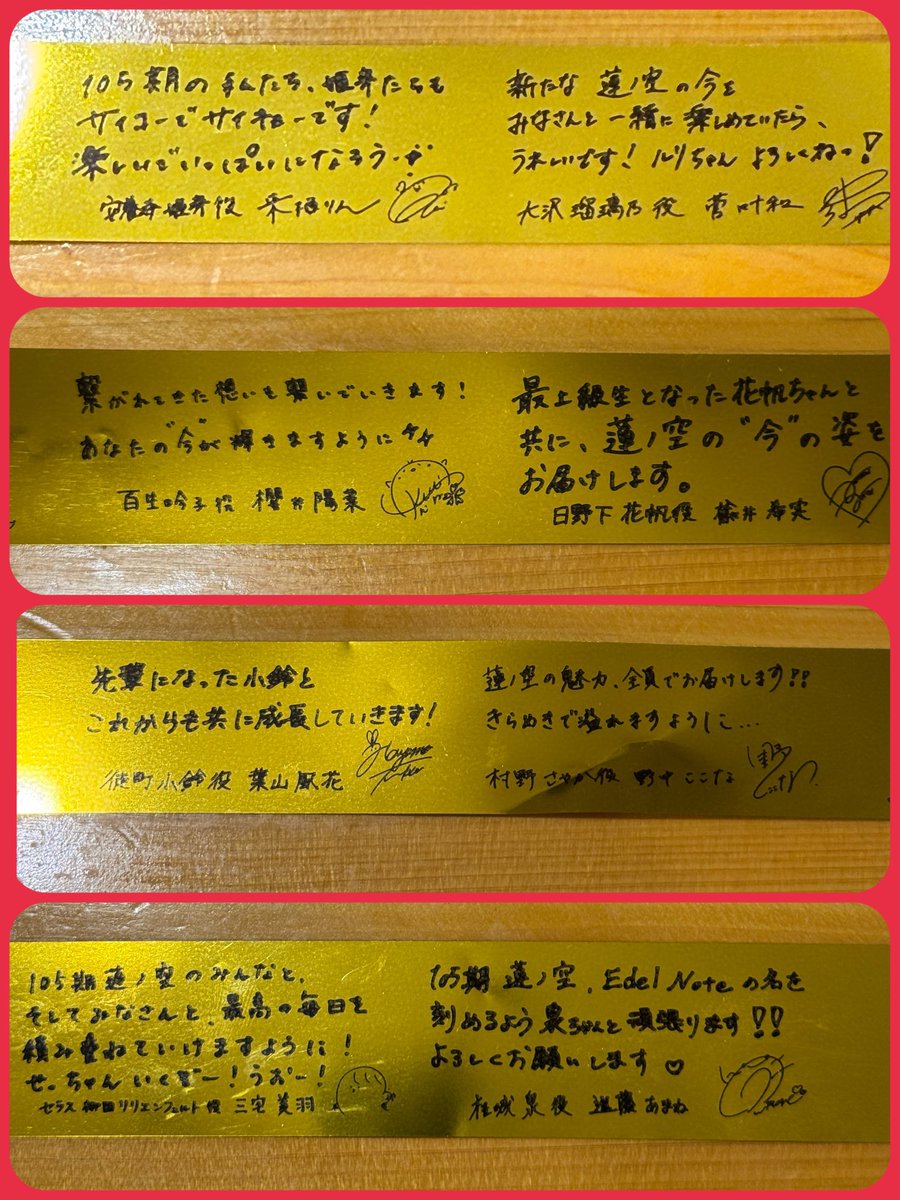 105期の手んたち、姫芽たちも
サイコーでサイキョーです!
楽しいでいっぱいになろうーか
安養寺姫芽役 来栖りん
新たな 蓮ノ空の今を
みなさんと一緒に楽しめていたら、
うれしいです! ルリちゃん よろしくねっ!
大沢瑠璃乃役 菅叶和
繋がれてきた想いも繋いでいきます!
あなたの“今”が輝きますように
百生吟子役 櫻井陽菜
最上級生となった花帆ちゃんと
共に、蓮ノ空の“今”の姿を
お届けします。
日野下花帆役 楡井希実
先輩になった小鈴と
これからも共に成長していきます!
徒町小鈴役 葉山風花
蓮ノ空の魅力、全員でお届けします!!
きらめきで溢れますように…
村野さやか役 野中ここな
105期蓮ノ空のみんなと、
そしてみなさんと、最高の毎日を
積み重ねていけますように!
せっちゃんいくぞー!うおー!
セラス柳田リリエンフェルト役 三宅美羽
105期 蓮ノ空、Edel Noteの名を
刻めるよう泉ちゃんと頑張ります!!
よろしくお願いします♡
桂城泉役 進藤あまね